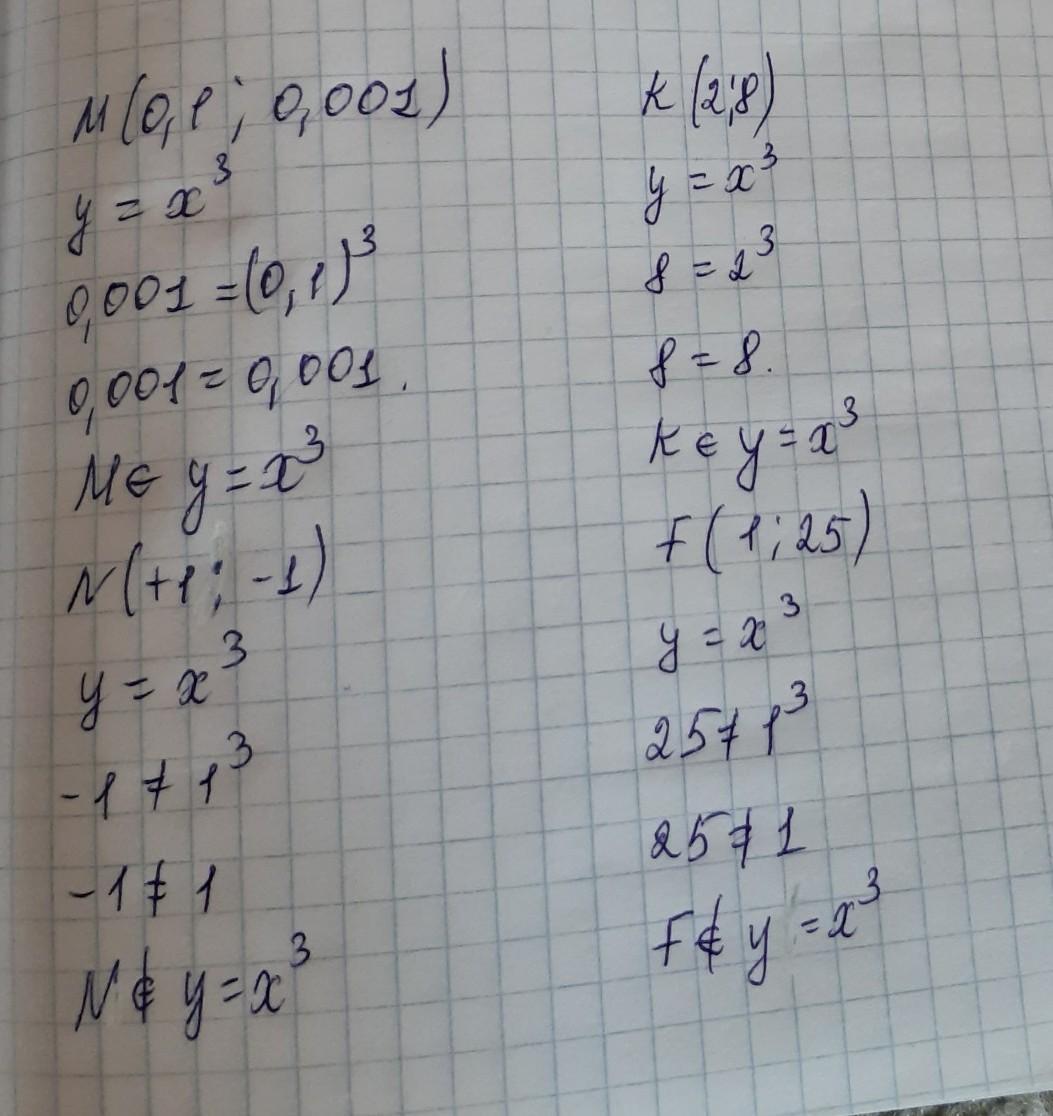 M(0,1; 0,001)
y = x³
0,001 = (0,1)³
0,001 = 0,001.
M ∈ y = x³
N(+1; -1)
y = x³
-1 ≠ 1³
-1 ≠ 1
N ∉ y = x³
K(2;8)
y = x³
8 = 2³
8 = 8.
K ∈ y = x³
F(1; 25)
y = x³
25 ≠ 1³
25 ≠ 1
F ∉ y = x³